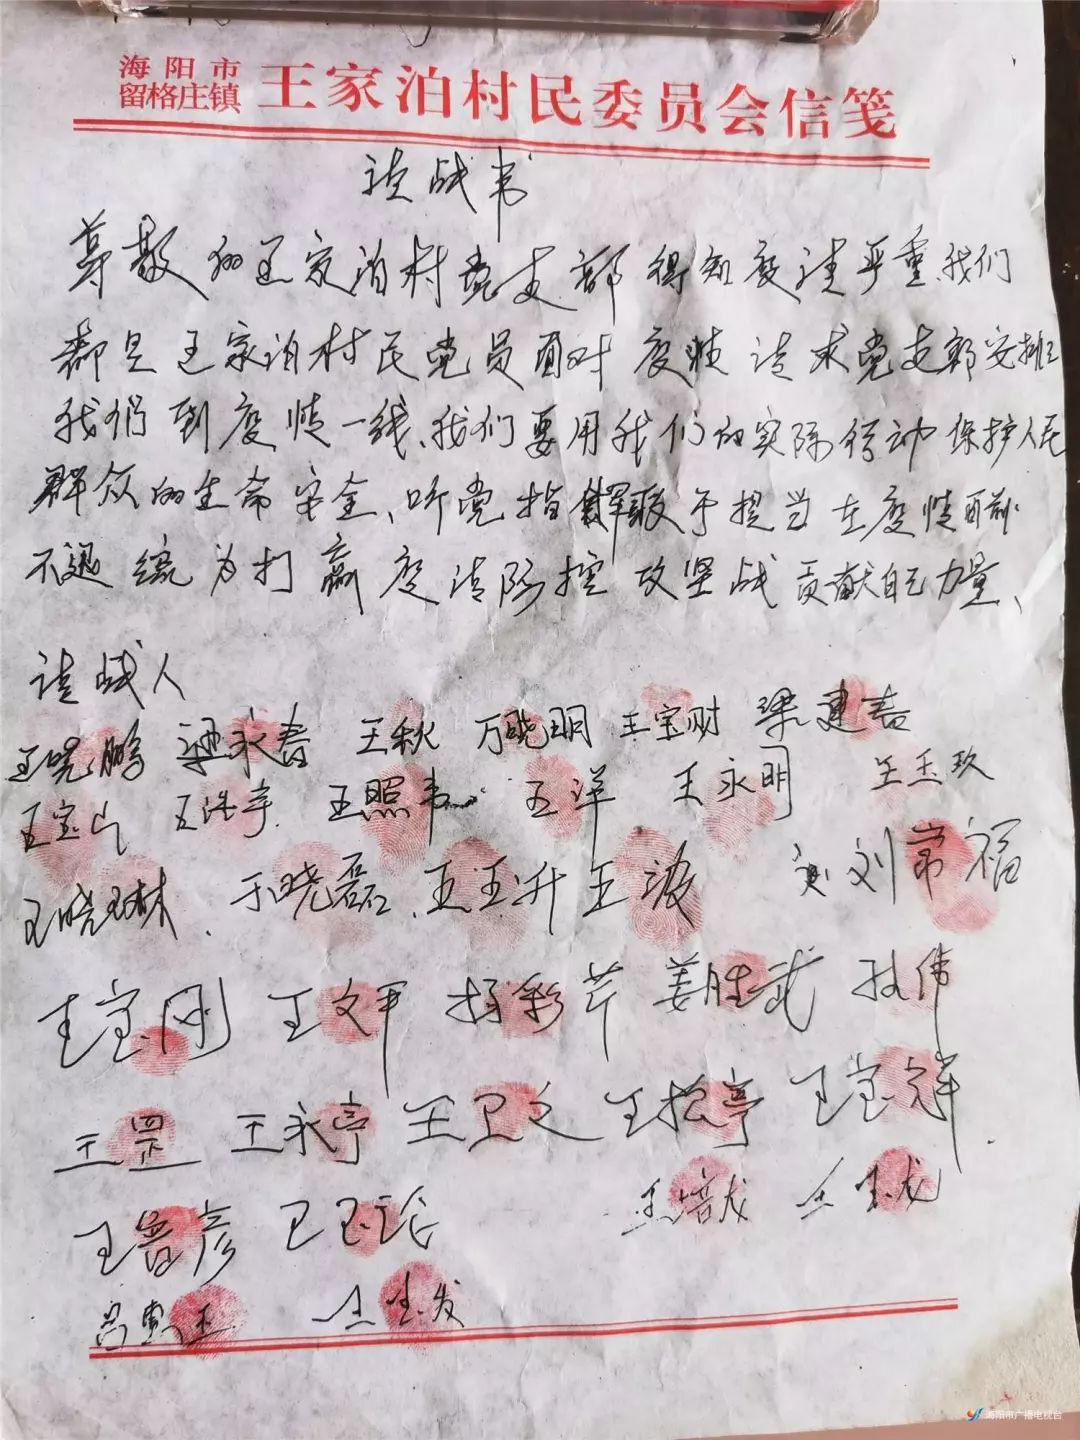 海阳市
留格庄镇
王家泊村民委员会信笺
请战书
尊敬的王家泊村党支部得知疫情严重、我们
都是王家泊村民党员面对疫情请求党支部安排
我们到疫情一线、我们要用我们的实际行动保护人民
群众的生命安全、听党指挥敢于担当在疫情面前
不退缩为打赢疫情防控攻坚战贡献自己力量、
请战人
王晓鹏 梁永春 王秋 万晓明 王宝财 梁建春
王宝山 王浩宇 王照韦 王洋 王永明 王玉玖
王晓琳 于晓磊 王玉升 王波 刘常福
王宝刚 王文军 杨彩芹 姜胜武 孙伟
王罡 王永亭 王卫文 王松亭 王宝祥
王晋彦 王玉论 王培龙 王龙
王发
海阳市广播电视台